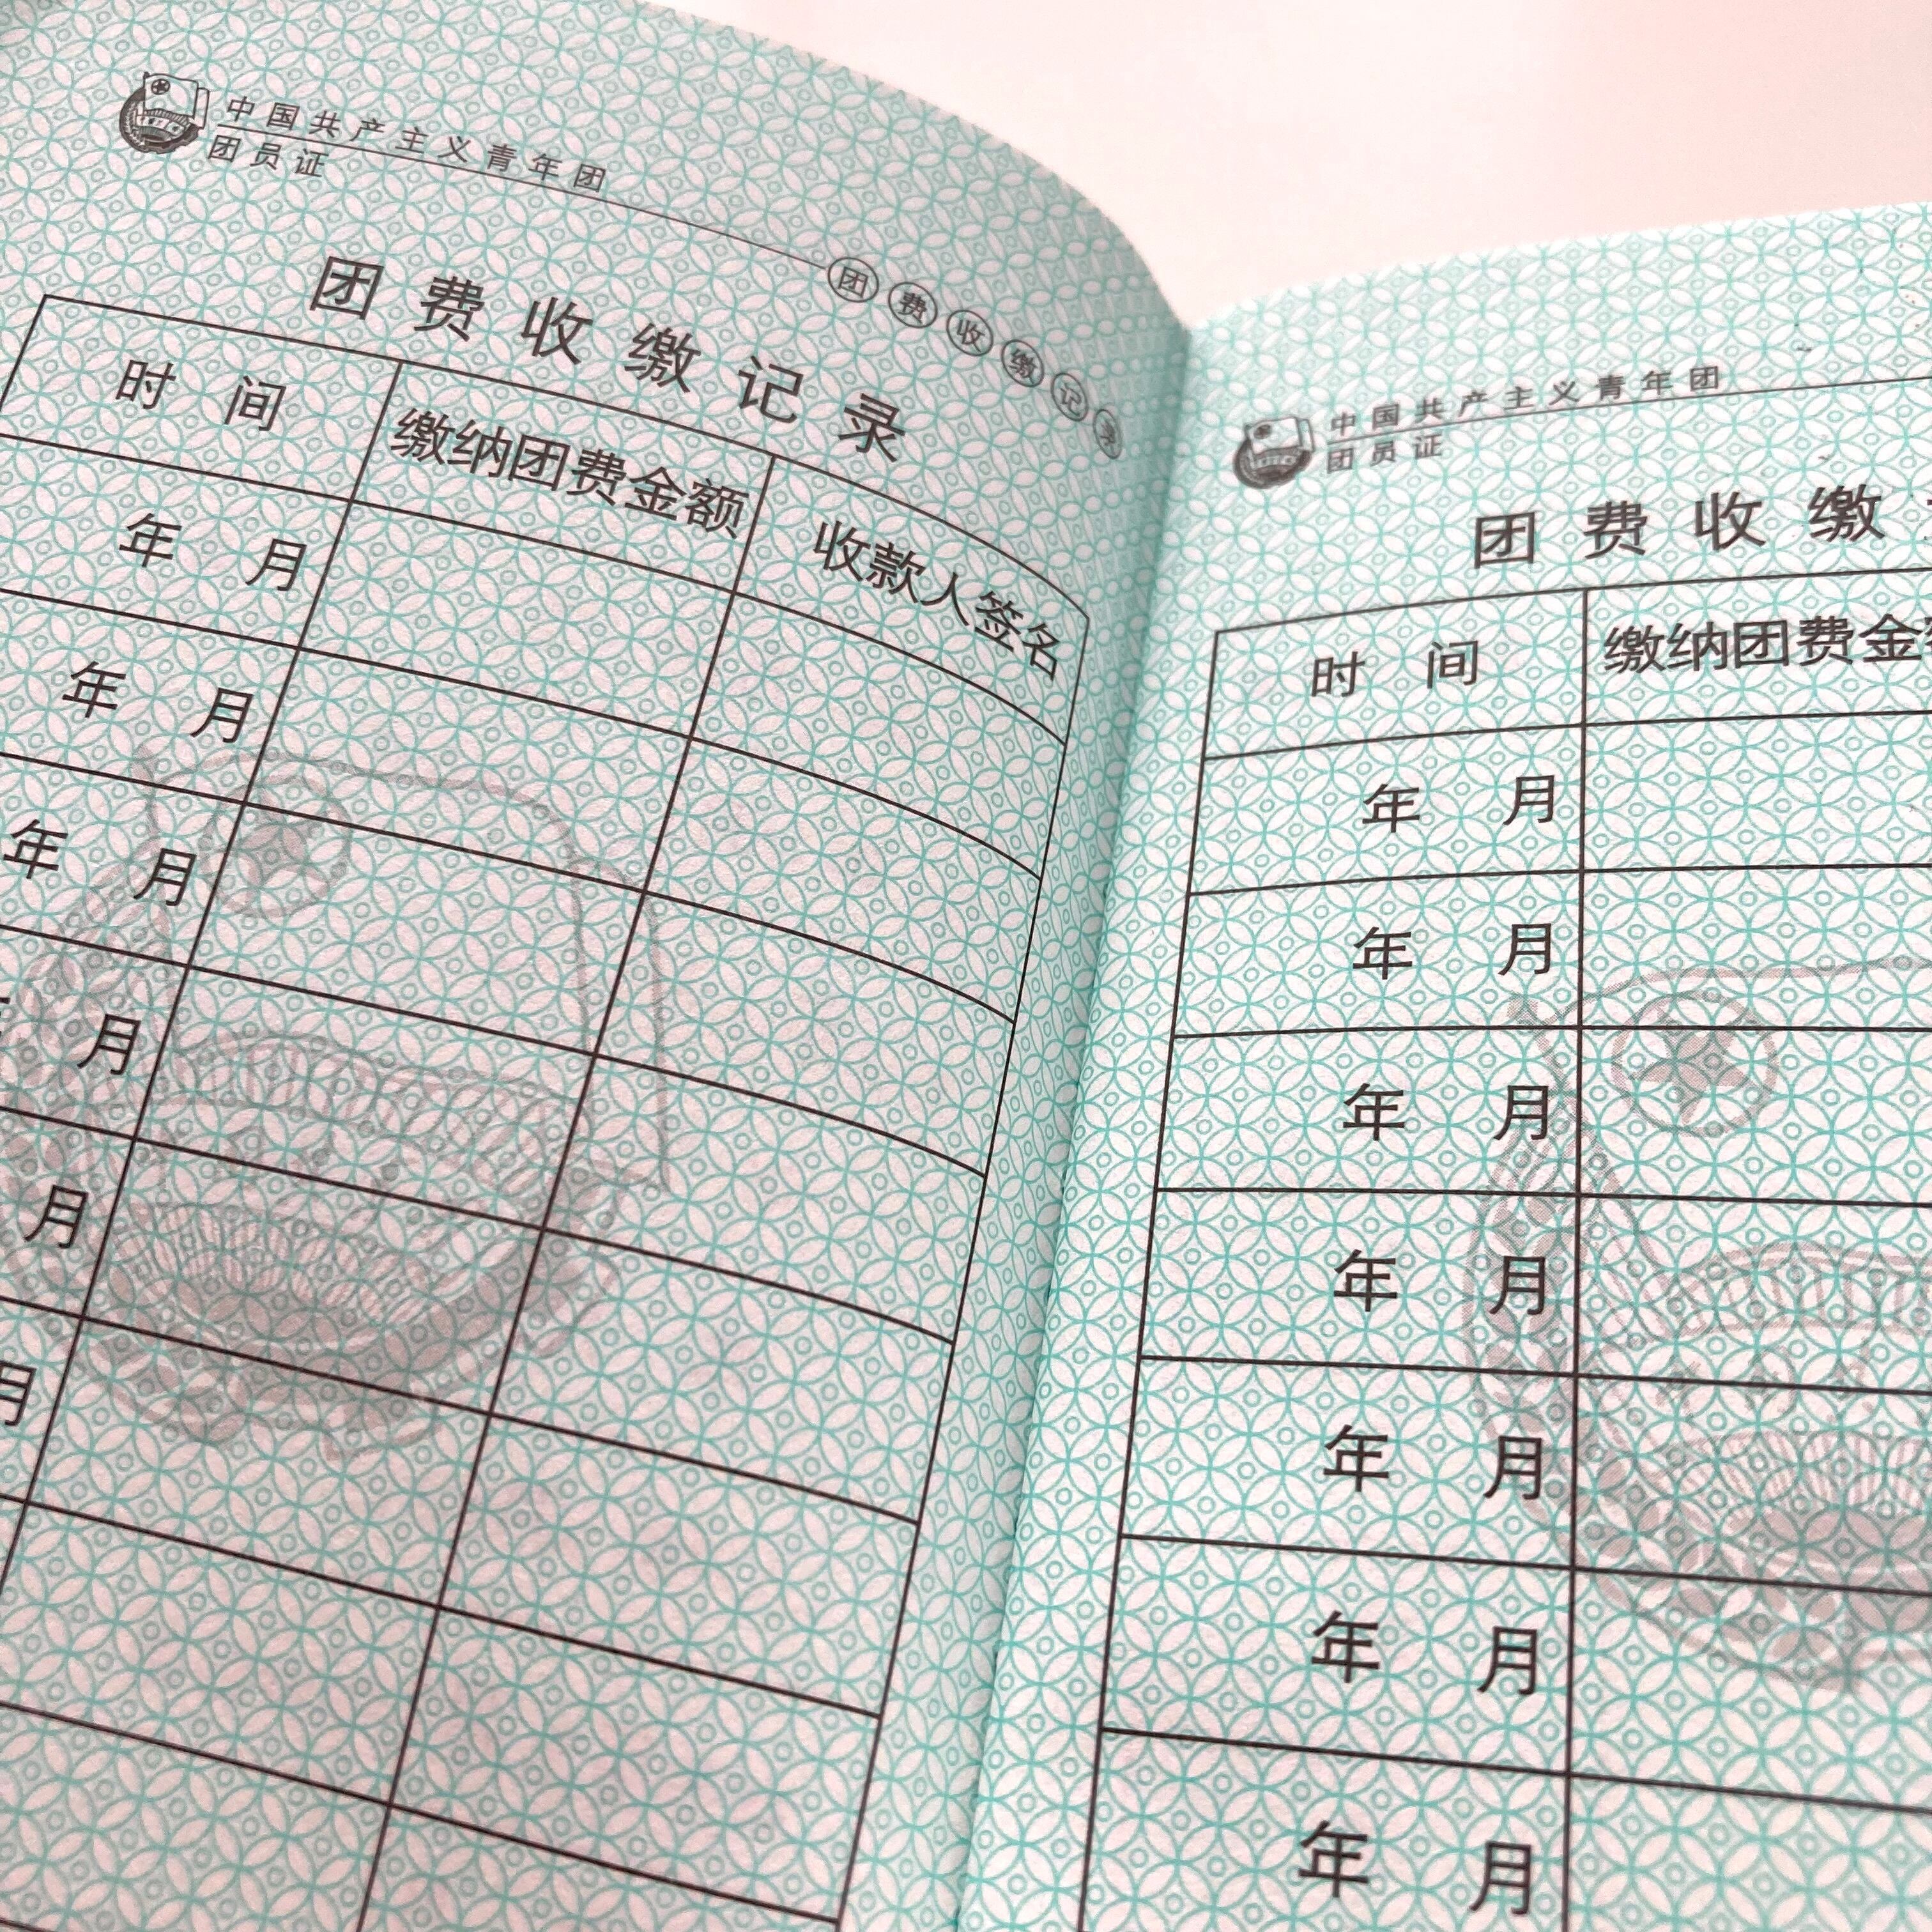 中国共产主义青年团
团员证
团费收缴记录
团费收缴记录
时间 缴纳团费金额 收款人签名
年 月
年 月
年 月
月
月
月
中国共产主义青年团
团员证
团费收缴
时间 缴纳团费金
年 月
年 月
年 月
年 月
年 月
年 月
年 月